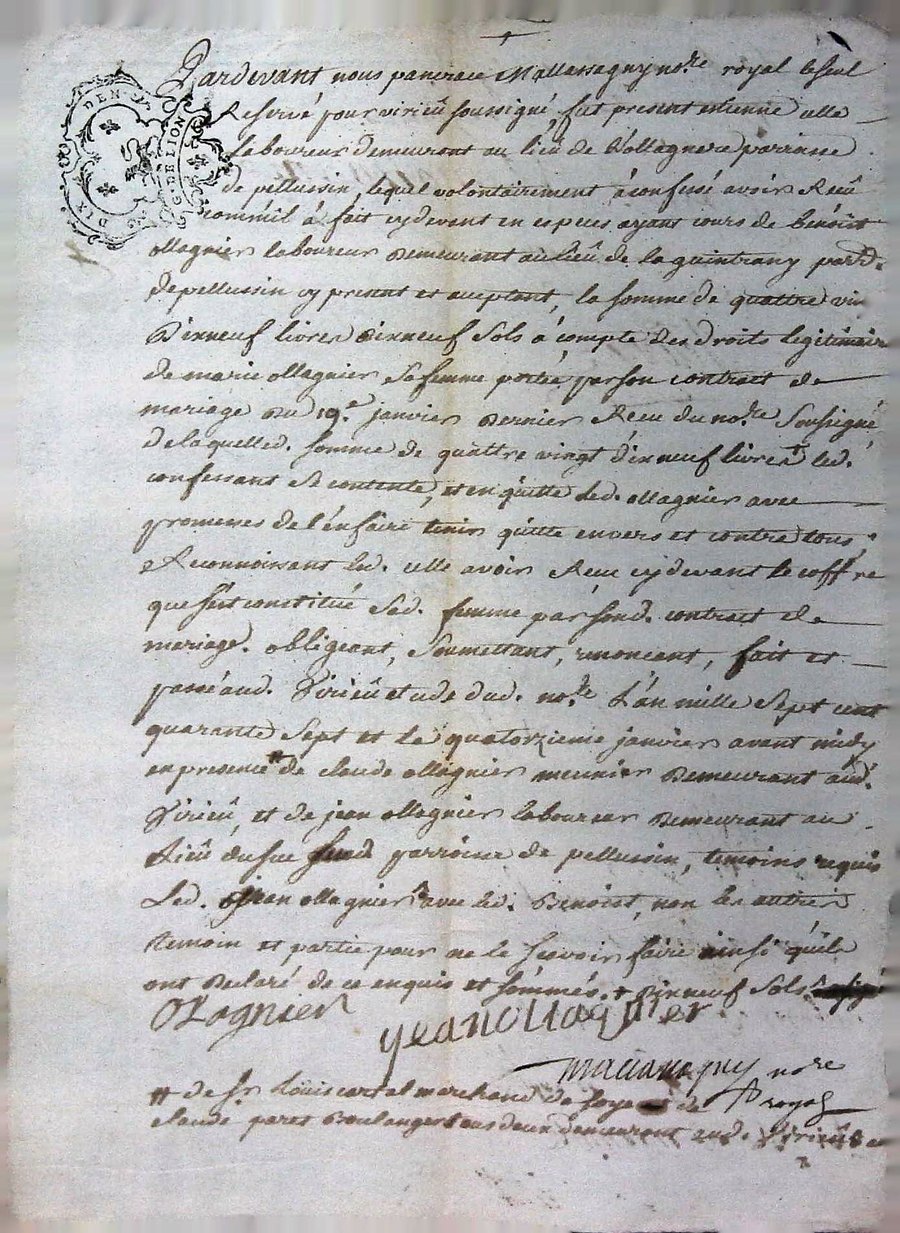 DIX DEN.
G. DE LION
Pardevant nous pancrace Mallassagny no.re royal le seul
Reservé pour virieû soussigné, fut present etienne
laboureur demeurant au lieû de Vollagnere parroisse
de pellussin, lequel volontairement à confessé avoir Receû
comme il à fait cydevant en especes ayant cours de benoist
ollagnier laboureur demeurant au lieû de la guintrany parr.e
de pellussin cy present et acceptant, la somme de quattre vin
Dixneuf livres dixneuf sols à compte des droits legitimaire
de marie ollagnier sa femme portée par son contract de
mariage du 19.e janvier dernier Receu du no.re soussigné
de laquelled. somme de quattre vingt dixneuf livres + led.
confessant se contente, et en quitte led. ollagnier avec
promesses de l'en faire tenir quitte envers et contre tous
Reconnoissant led. avoir Receu cydevant le coffre
que s'est constitué sad. femme par sond. contract de
mariage. obligeant, soumettant, renoncant, fait et
passé aud. Virieû etude dud. no.re L'an mille sept cent
quarante sept et le quatorzieme janvier avant midy
en presence # de claude ollagnier meunier demeurant aud.
Virieû, et de jean ollagnier laboureur demeurant au
Lieû du parroisse de pellussin, temoins requis
Led. jean ollagnier avec led. Benoist, non les autres
temoin et partie pour ne le scavoir faire ainsi qu'ils
ont declaré de ce enquis et sommés. + dixneuf sols
Ollagnier
jean ollagnier
Mallassagny no.re
royal
# de s.r Loüis cartal marchand de soye de
claude paret Boulanger tous deux demeurant aud. Virieû